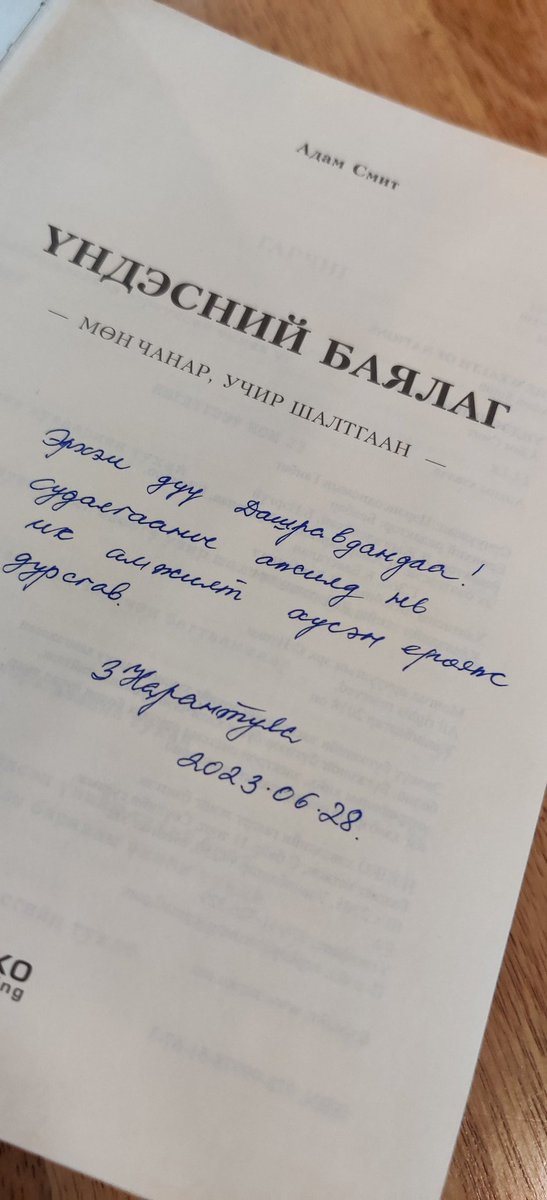 Адам Смит
ҮНДЭСНИЙ БАЯЛАГ
— МӨН ЧАНАР, УЧИР ШАЛТГААН —
Эрхэм дүү Дашравдандаа!
Судалгааныг ажилд нь
их амжилт хүсэн ерөөж
дурсгав.
З Нарантуяа
2023.06.28.
КО
ng